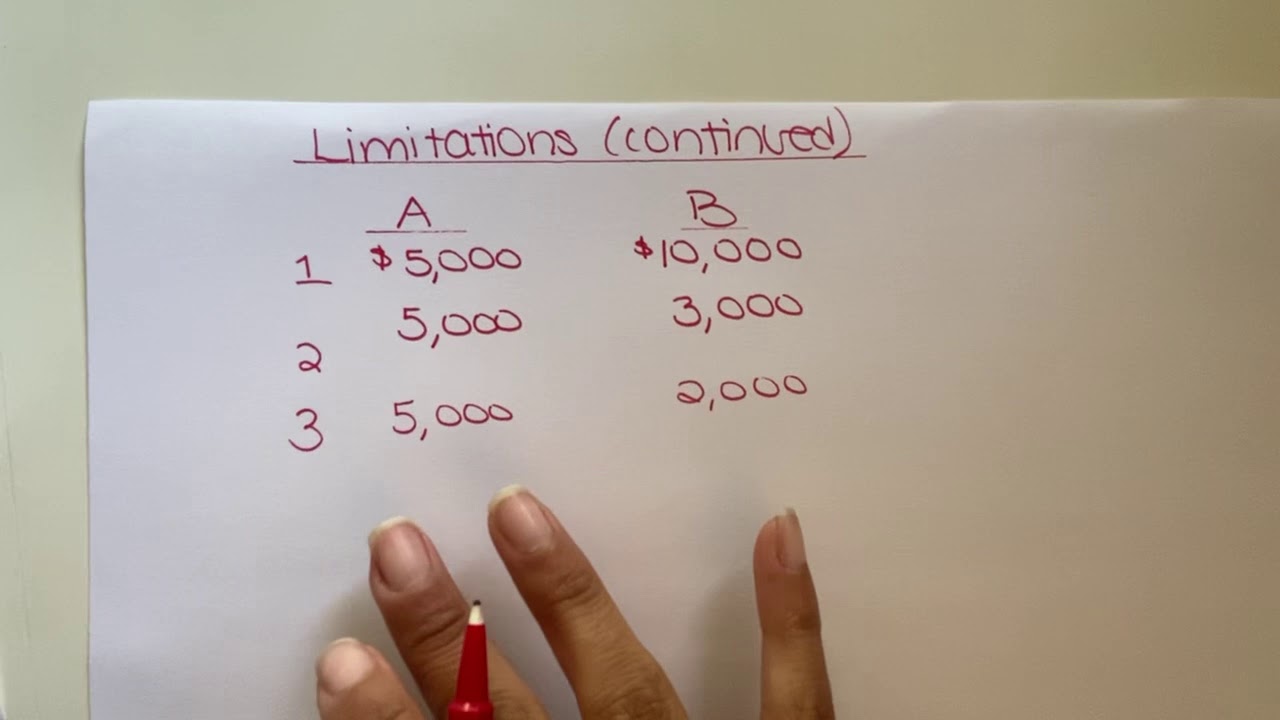 Limitations (continued)
A B
1 $5,000 $10,000
5,000 3,000
2
3 5,000 2,000